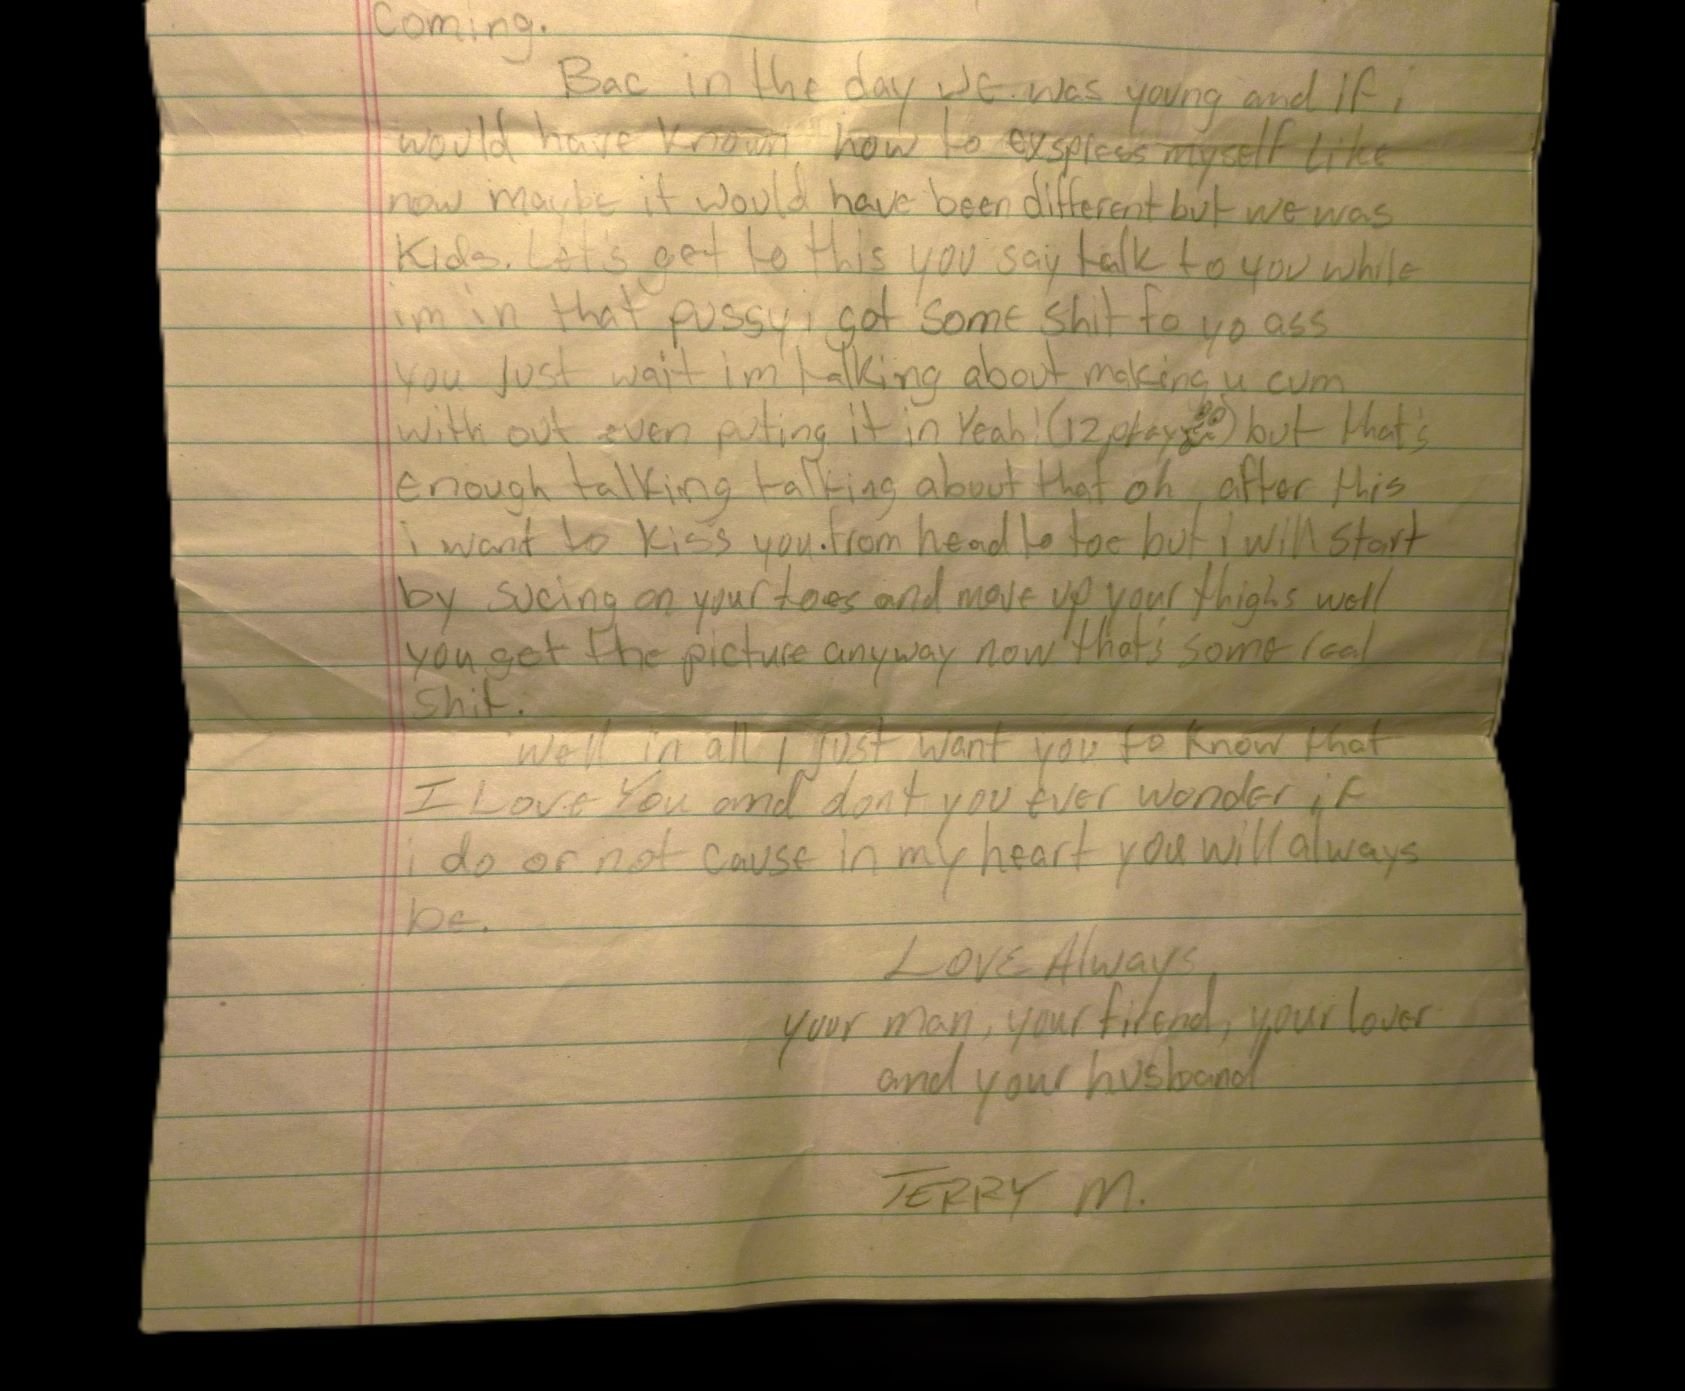 Coming.
Bac in the day WE was young and if i
would have known how to exspress myself like
now maybe it would have been different but we was
Kids. Let's get to this you say talk to you while
im in that pussy i got some shit fo yo ass
you just wait im talking about making u cum
with out even puting it in Yeah! (12 play) but that's
enough talking talking about that oh after this
i want to kiss you from head to toe but i will start
by sucing on your toes and move up your thighs well
you get the picture anyway now that's some real
shit.
well in all i just want you to know that
I Love You and dont you ever wonder if
i do or not cause in my heart you will always
be.
LOVE Always
your man, your firend, your lover
and your husband
TERRY M.